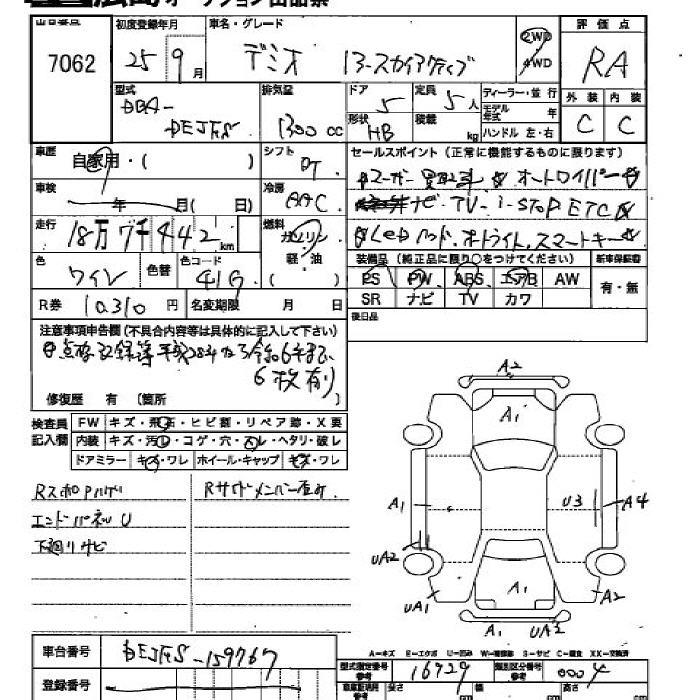 オークション出品票
出品番号 初度登録年月 車名・グレード 評価点
7062 25年9月 デミオ 13-スカイアクティブ 2WD 4WD RA
型式 排気量 ドア 定員 ディーラー・並行 外装 内装
DBA- DEJFS 1300cc 5 5人 モデル年式 年 C C
形状 HB 積載 kg ハンドル 左・右
車歴 自家用・( ) シフト AT セールスポイント(正常に機能するものに限ります)
車検 年 月( 日) 冷房 AAC
オートワイパー
ナビ TV i-STOP ETC
走行 18万7千442km 燃料 ガソリン 軽油
LED ヘッド、オートライト、スマートキー
色 ワイン 色替 色コード 41G
装備品(純正品に限り○をつけてください) 新車保証書
PS PW ABS エアB AW 有・無
SR ナビ TV カワ
R券 10310円 名変期限 月( 日)
後日品
注意事項申告欄(不具合内容等は具体的に記入して下さい)
点検記録簿 平成28年から令和6年まで
6枚有り
修復歴 有 〔箇所 〕
検査員記入欄 FW キズ・飛石・ヒビ割・リペア跡・X要
内装 キズ・汚レ・コゲ・穴・スレ・ヘタリ・破レ
ドアミラー キズ・ワレ ホイール・キャップ キズ・ワレ
Rサイドメンバー
エンドパネル U
下廻りサビ
A2
A1
A1 U3 A4
UA2
UA1 A1 A2
A1 UA2
A-キズ E-エクボ U-凹み W-補修跡 S-サビ C-腐食 XX-交換済
車台番号 DEJFS-159767
型式指定番号 参考 16929 類別区分番号 参考 0004
登録番号
長さ cm 幅 cm 高さ cm